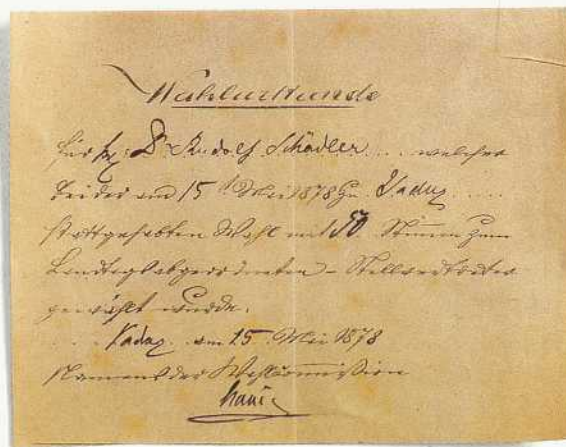 Wahlurkunde
für H: Dr Rudolf Schädler welcher
bei der am 15t Mai 1878 zu Vaduz
stattgehabten Wahl mit Stimmen zum
Landtagsabgeordneten - Stellvertreter
gewählt wurde.
Vaduz am 15 Mai 1878
Namens der Wahlcommission